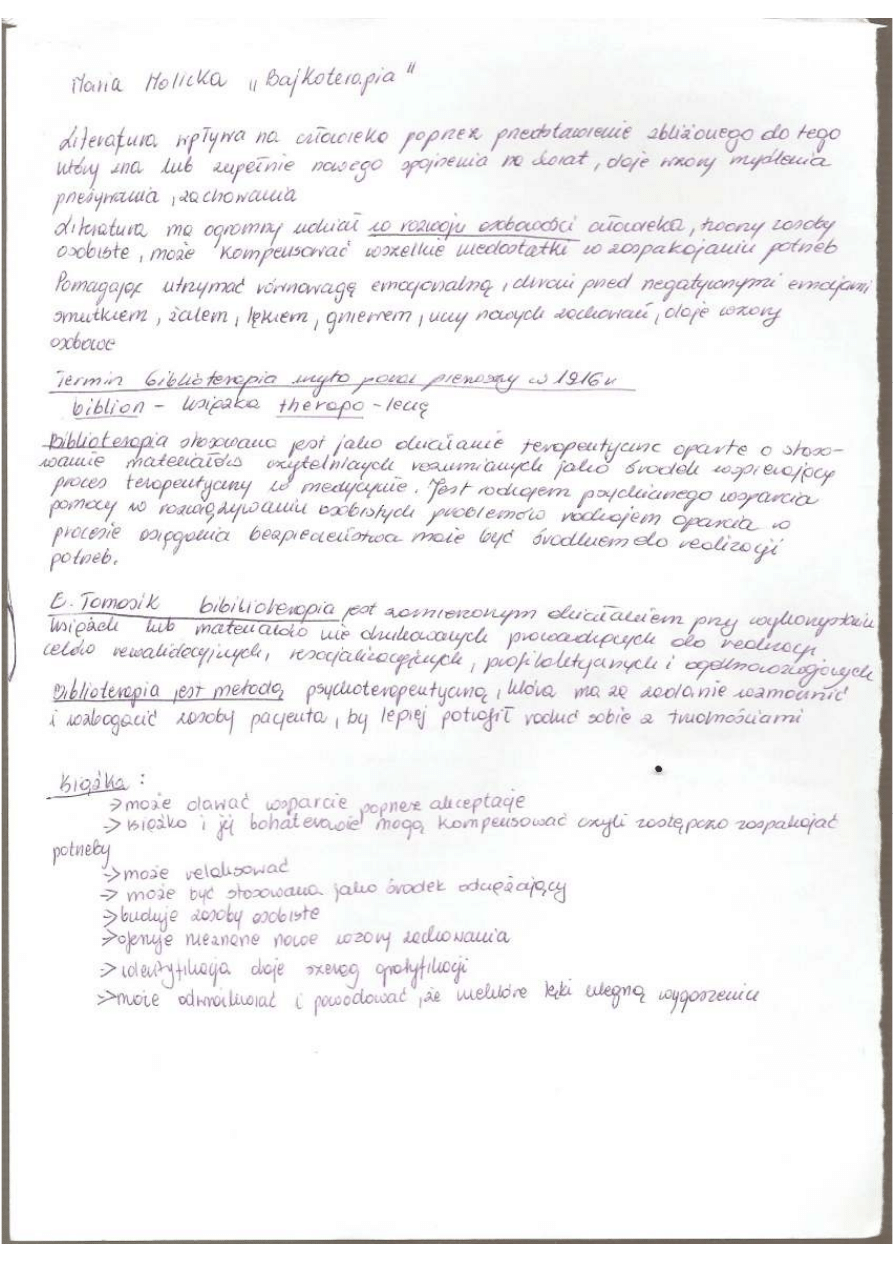 Maria Molicka „Bajkoterapia"
Literatura wpływa na człowieka poprzez przedstawienie zbliżonego do tego
który zna lub zupełnie nowego spojrzenia na świat, daje wzory myślenia
przeżywania, zachowania
Literatura ma ogromny udział w rozwoju osobowości człowieka, tworzy zasoby
osobiste, może kompensować wszelkie niedostatki w zaspakojaniu potrzeb
Pomagając utrzymać równowagę emocjonalną, chroni przed negatywnymi emocjami
smutkiem, żalem, lękiem, gniewem, uczy nowych zachowań, daje wzory
osobowe
Termin biblioterapia użyto po raz pierwszy w 1916r
biblion - książka therapo - leczę
Biblioterapia stosowana jest jako działanie terapeutyczne oparte o stoso-
wanie materiałów czytelniczych rozumianych jako środek wspierający
proces terapeutyczny w medycynie. Jest rodzajem psychicznego wsparcia
pomocy w rozwiązywaniu osobistych problemów rodzajem oparcia w
procesie osiągania bezpieczeństwa może być środkiem do realizacji
potrzeb.
E. Tomasik bibilioterapia jest zamierzonym działaniem przy wykorzystaniu
książek lub materiałów nie drukowanych prowadzących do realizacji
celów rewalidacyjnych, resocjalizacyjnych, profilaktycznych i ogólnorozwojowych
Biblioterapia jest metodą psychoterapeutyczną, która ma za zadanie wzmocnić
i wzbogacić zasoby pacjenta, by lepiej potrafił radzić sobie z trudnościami
Książka:
-> może dawać wsparcie poprzez akceptację
-> książka i jej bohaterowie mogą kompensować czyli zastępczo zaspakojać
potrzeby
-> może relaksować
-> może być stosowana jako środek odciążający
-> buduje zasoby osobiste
-> oferuje nieznane nowe wzory zachowania
-> identyfikacja daje szereg gratyfikacji
-> może odwrażliwiać i powodować, że niektóre lęki ulegną wygaszeniu